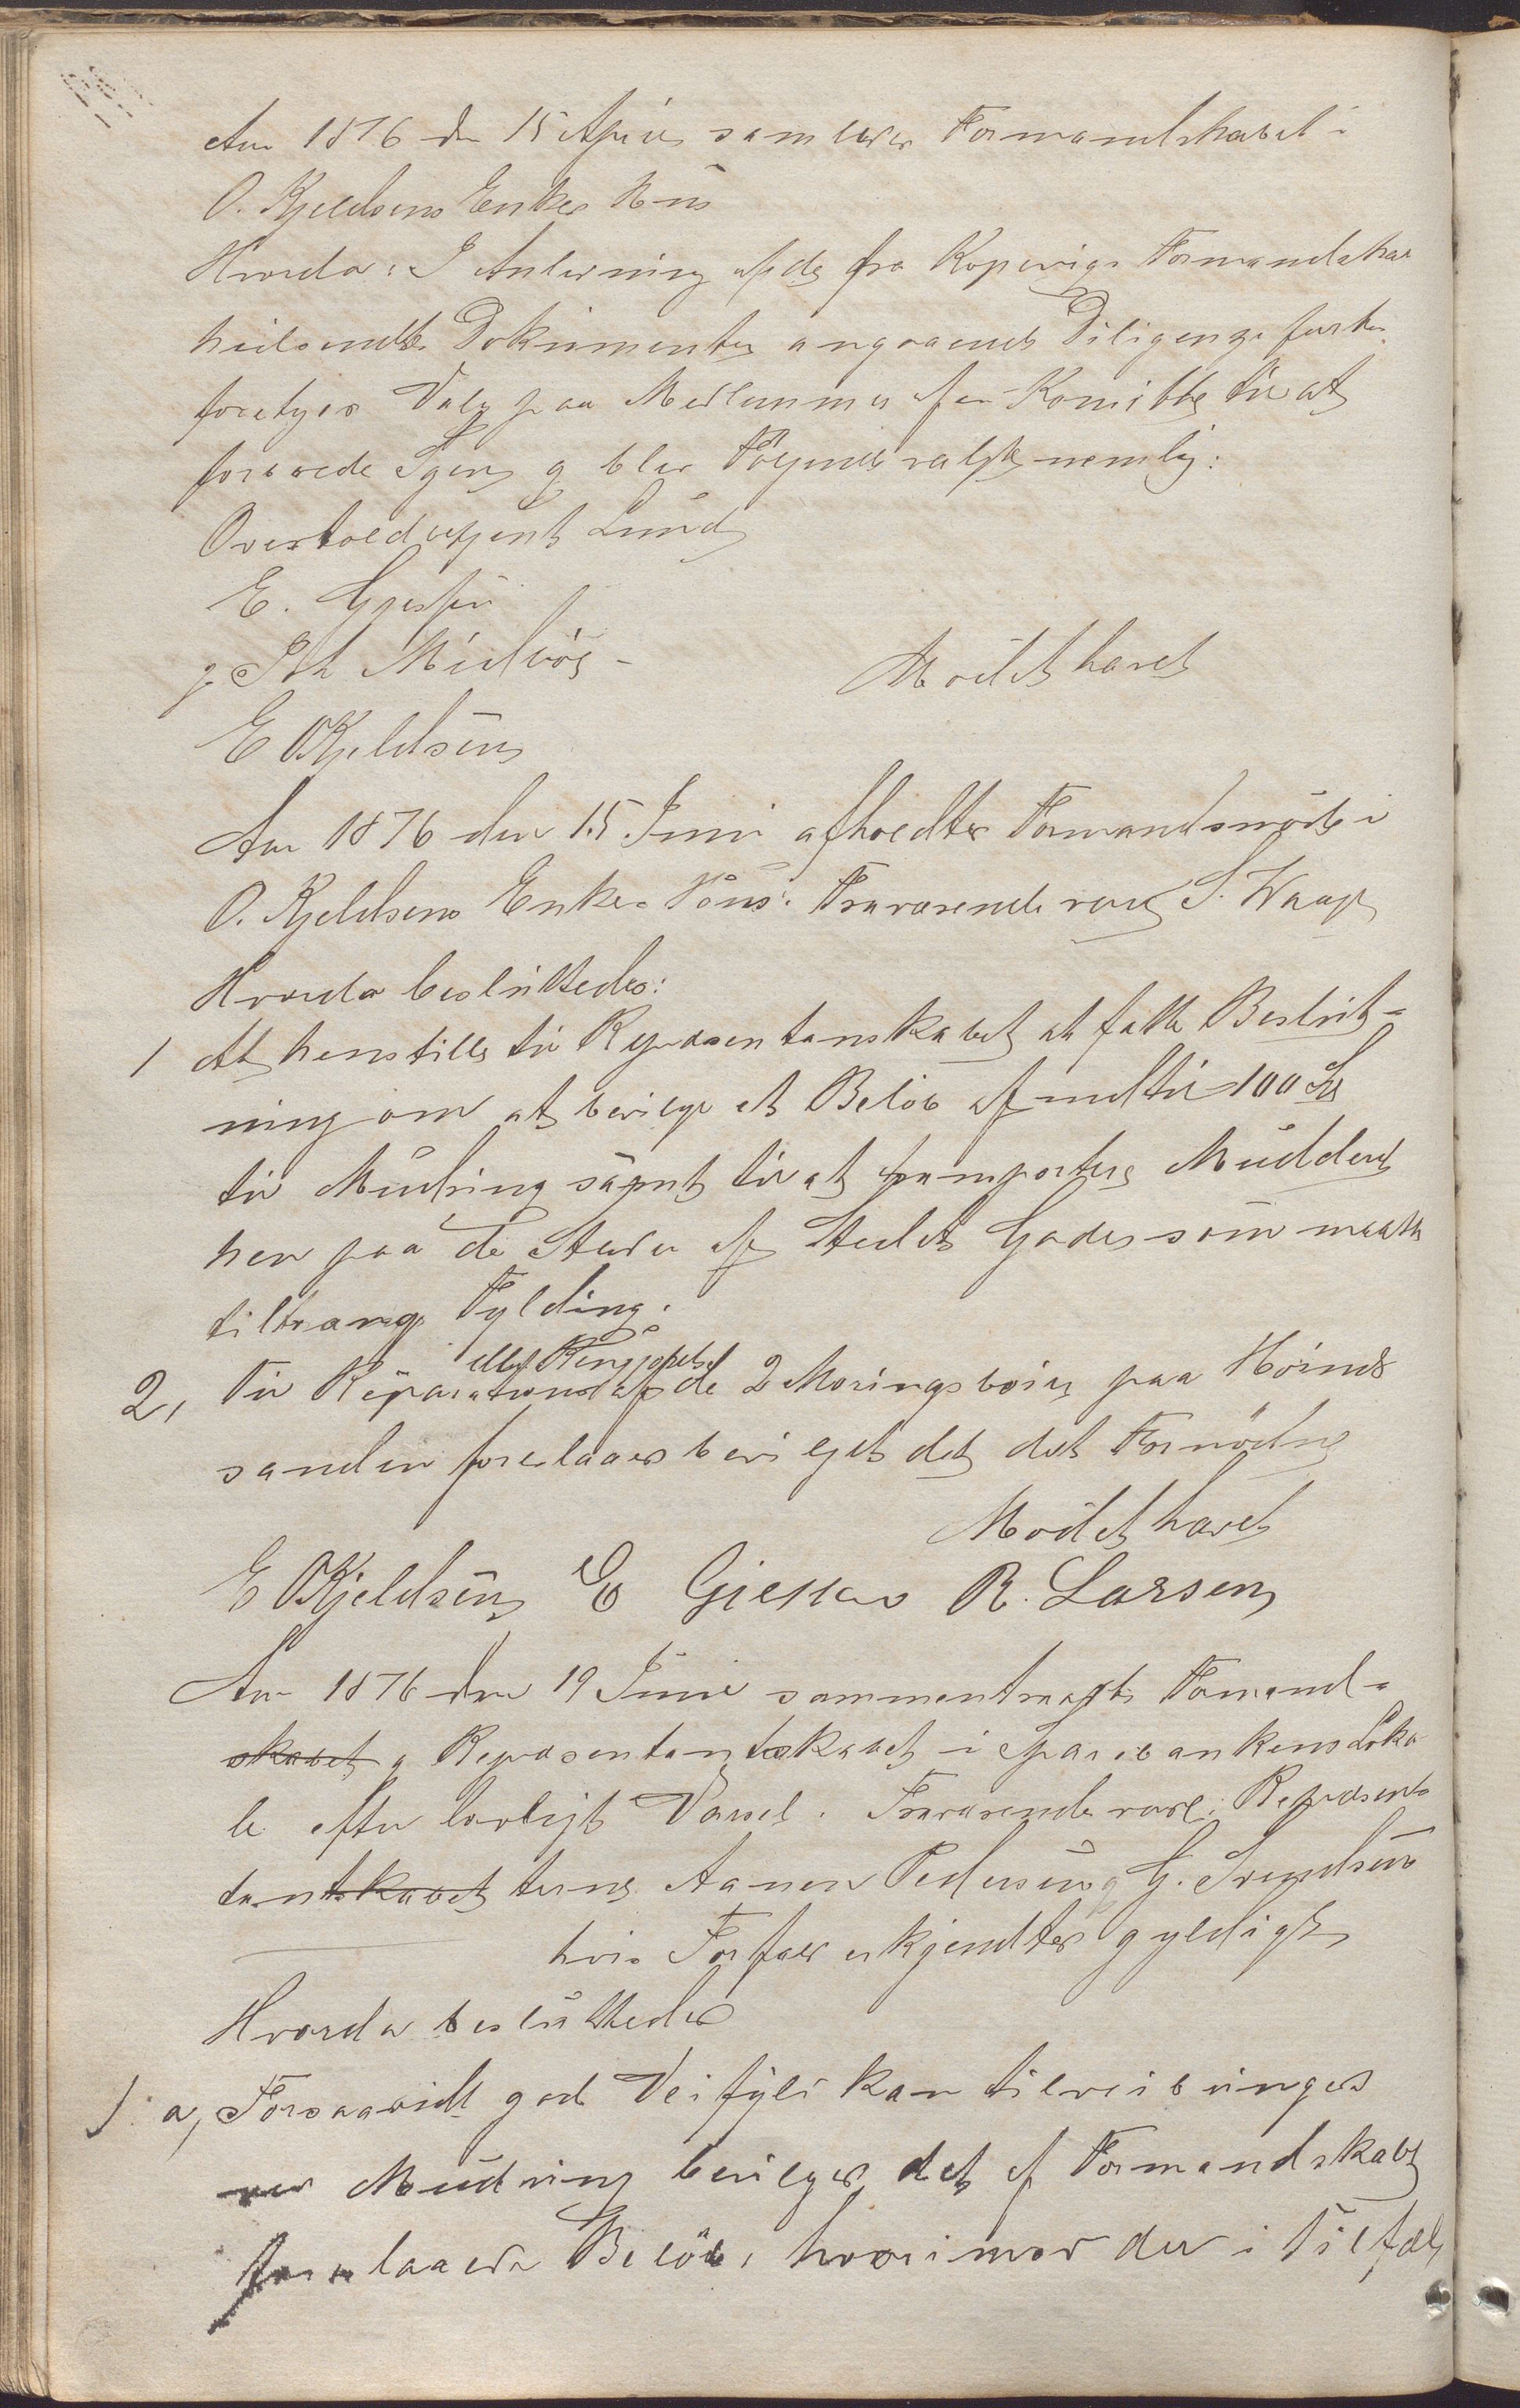 Aar 1876 den 15 April samledes Formandskabet i
O. Kjeldsens Enkes Huus
Hvorda: I Anledning af de fra Kopervigs Formandskab
hidsendte Dokumenter angaaende Diligencefarten
foretoges Valg paa Medlemmer af en Komitte til at
forberede Sagen og blev Følgende valgte nemlig:
Overtoldbetjent Lund
E. Gjesten
og Joh Midbøe
Mødet hævet
E OKjeldsen
Aar 1876 den 15 Juni afholdtes Formandsmøde i
O. Kjeldsens Enkes Huus. Fraværende var S. Waage
Hvorda besluttedes:
1 At henstille til Repræsentanskabet at fatte Beslut-
ning om at bevilge et Beløb af indtil 100 Kr
til Mudring samt til at transportere Mudderet
hen paa de Steder af Stedets Gader som maatte
tiltrænge Fylding.
2, Til Reparation eller Kjøb af de 2 Moringsbøier paa Høinds
sanden foreslaaes bevilget det Fornødne
Mødet hævet
E OKjeldsen E Giesten R. Larsen
Aar 1876 den 19 Juni sammentraadte Formand-
skabet og Repræsentantskabet i Sparebankens Loka
le efter lovligt Varsel. Fraværende vare: Repræsen
tantskabet terne Aanen Pedersen og G. Svendsen
hvis Forfald erkjendtes gyldigt
Hvorda besluttedes
1 a, Forsaavidt god Veifyld kan tilveiebringes
ved Mudring bevilges det af Formandskabet
foreslaaede Beløb, hvorimod der i Tilfælde